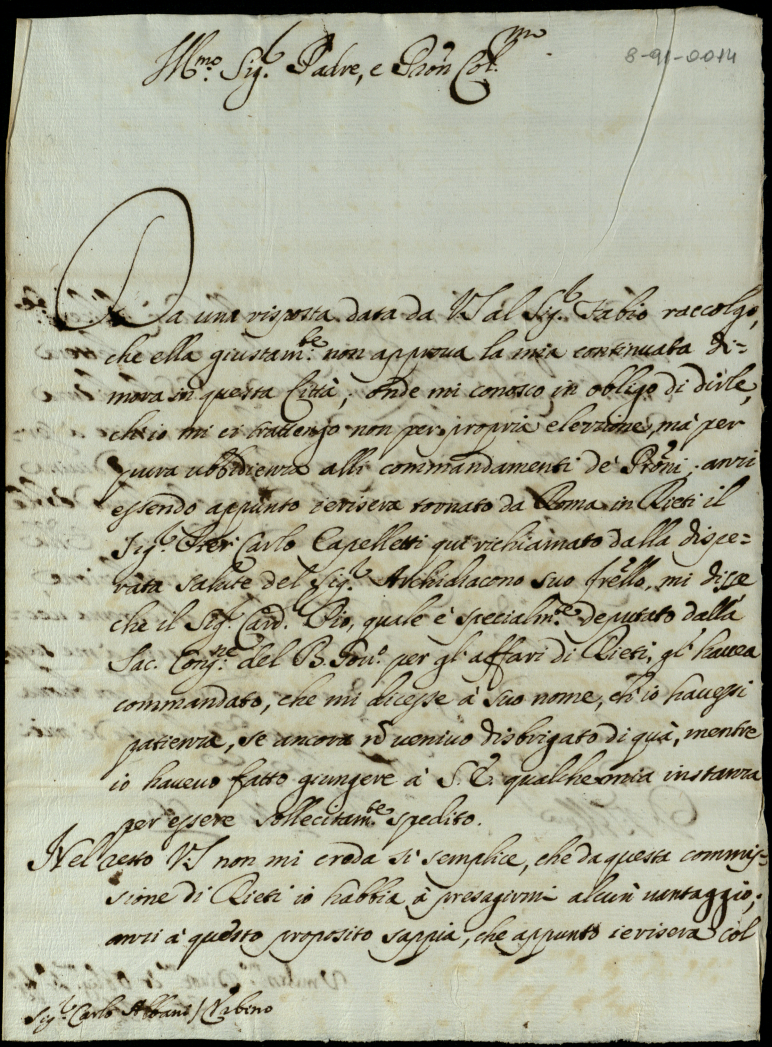 8-91-0014
Ill.mo Sig.r Padre, e Pron Col.mo
Da una risposta data da VS al Sig.r Fabio raccolgo,
che ella giustam.te non approva la mia continuata di=
mora in questa Città; onde mi conosco in obligo di dirle,
ch'io mi ci trattengo non per propria elezzione, mà per
pura ubbidienza alli commandamenti de' Proni; anzi
essendo appunto ierisera tornato da Roma in Rieti il
Sig.r Pier Carlo Capelletti quì richiamato dalla dispe=
rata salute del Sig.r Archidiacono suo frello, mi disse
che il Sig.r Card. Pio, quale è specialm.te deputato dalla
Sac. Cong.ne del B. Gov.o per gl'affari di Rieti, gl'havea
commandato, che mi dicesse à suo nome, ch'io havessi
patienza, se ancora nõ venivo disbrigato di quà, mentre
io havevo fatto giungere à S.E. qualche mia instanza
per essere sollecitam.te spedito.
Nel resto VS non mi creda sì semplice, che da questa commis=
sione di Rieti io habbia à presagirmi alcun vantaggio;
anzi à questo proposito sappia, che appunto ierisera col
Sig.r Carlo Albani / Urbino